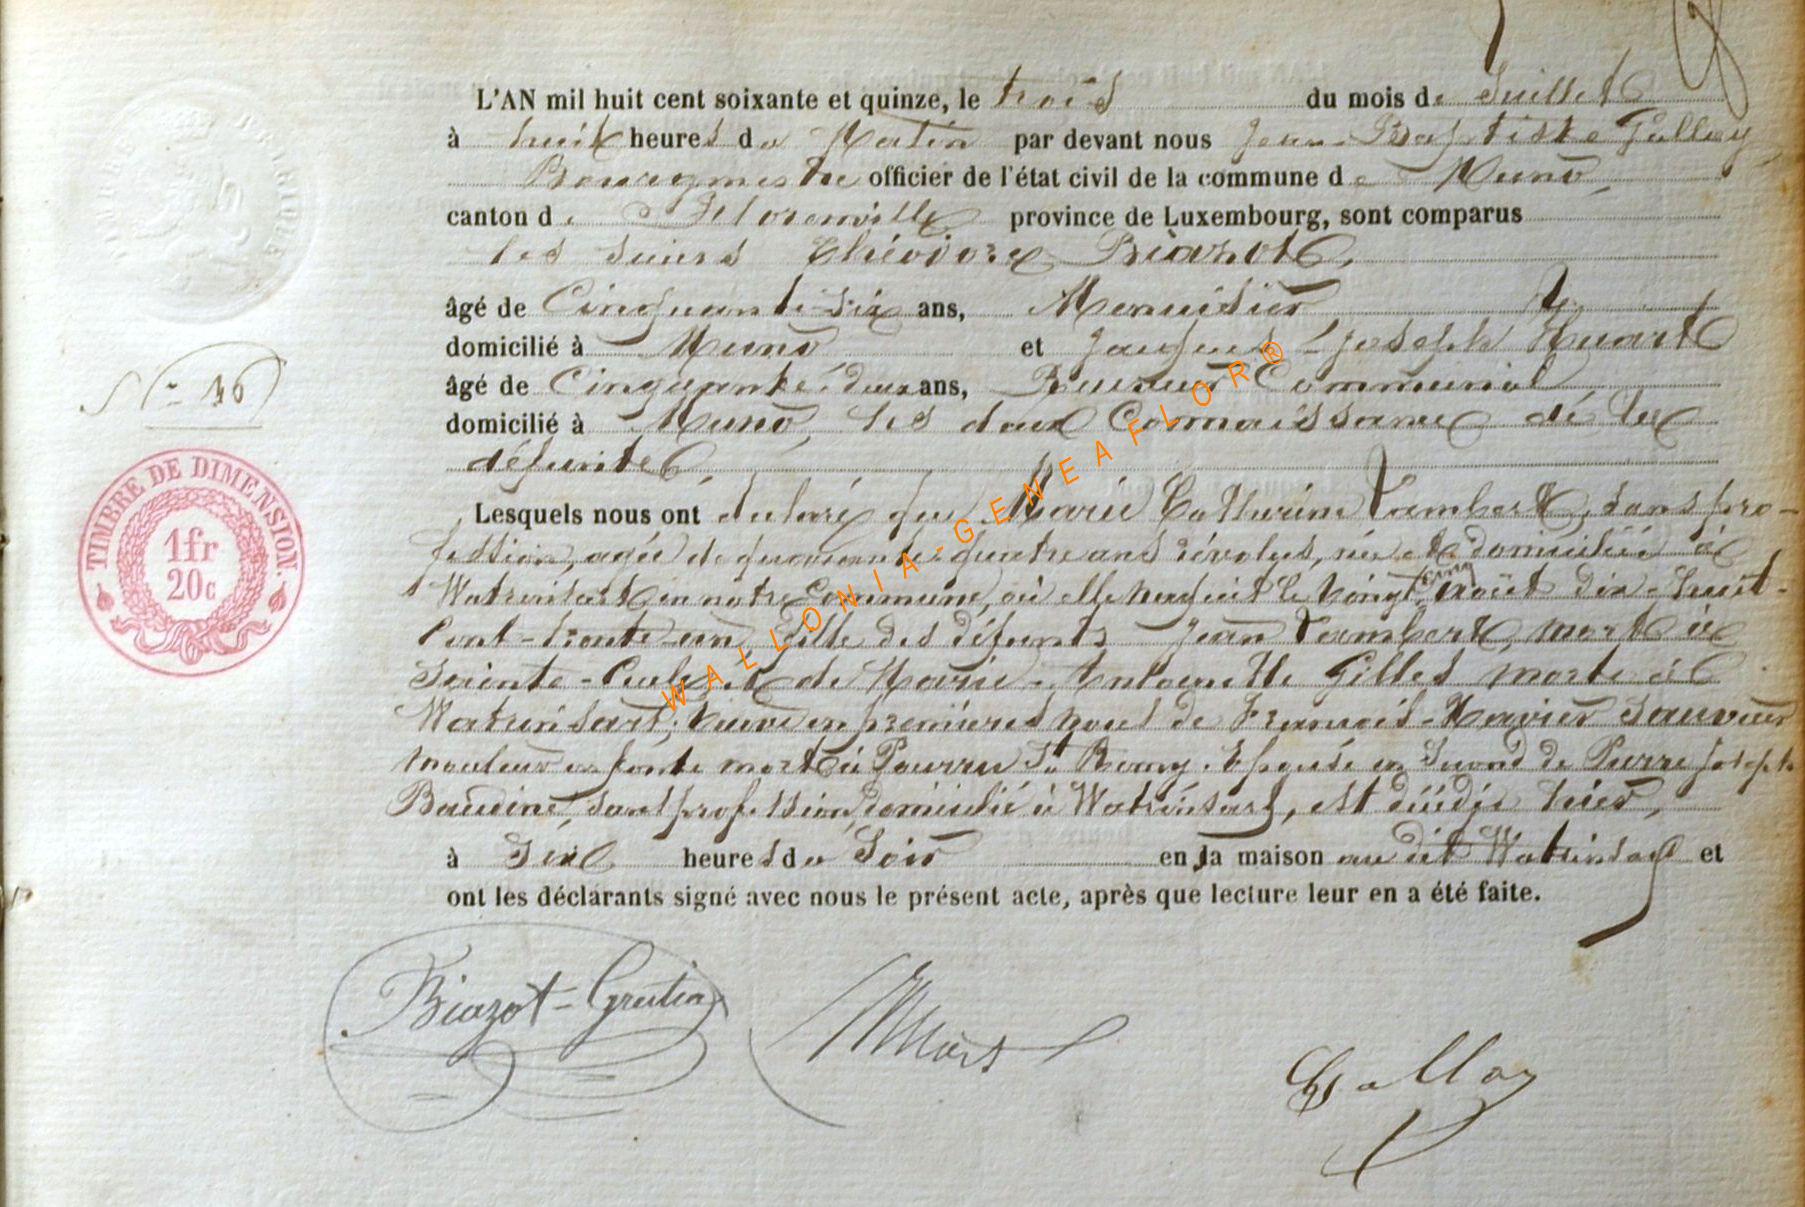 L'AN mil huit cent soixante et quinze, le trois du mois de Juillet
à huit heures du Matin par devant nous Jean-Baptiste Galloy
Bourgmestre officier de l'état civil de la commune de Muno,
canton de Florenville province de Luxembourg, sont comparus
les sieurs Théodore Biazot,
âgé de Cinquante-six ans, Menuisier
domicilié à Muno et Jacques-Joseph Huart
âgé de Cinquante-deux ans, Receveur Communal
domicilié à Muno, les deux Connaissance de la
défunte,
Lesquels nous ont déclaré que Marie Catherine Lambert, sans pro-
fession, agée de quarante-quatre ans révolus, née et domiciliée à
Watrinsart en notre Commune, où elle naquit le vingt cinq août dix-huit-
Cent-trente-un, fille des défunts Jean Lambert, mort à
Sainte-Cécile, et de Marie-Antoinette Gilles morte à
Watrinsart; veuve en premières noces de François-Xavier Sauveur
mouleur en fonte mort à Pourru St Remy. Epouse en Second de Pierre Joseph
Baudine, sans profession, domicilié à Watrinsart, est décédée hier,
à Six heures du Soir en sa maison au dit Watrinsart et
ont les déclarants signé avec nous le présent acte, après que lecture leur en a été faite.
N° 16
TIMBRE DE DIMENSION.
1fr
20c
WALLONIA-GENEAFLOR®
Biazot-Gratia
Huart
Galloy